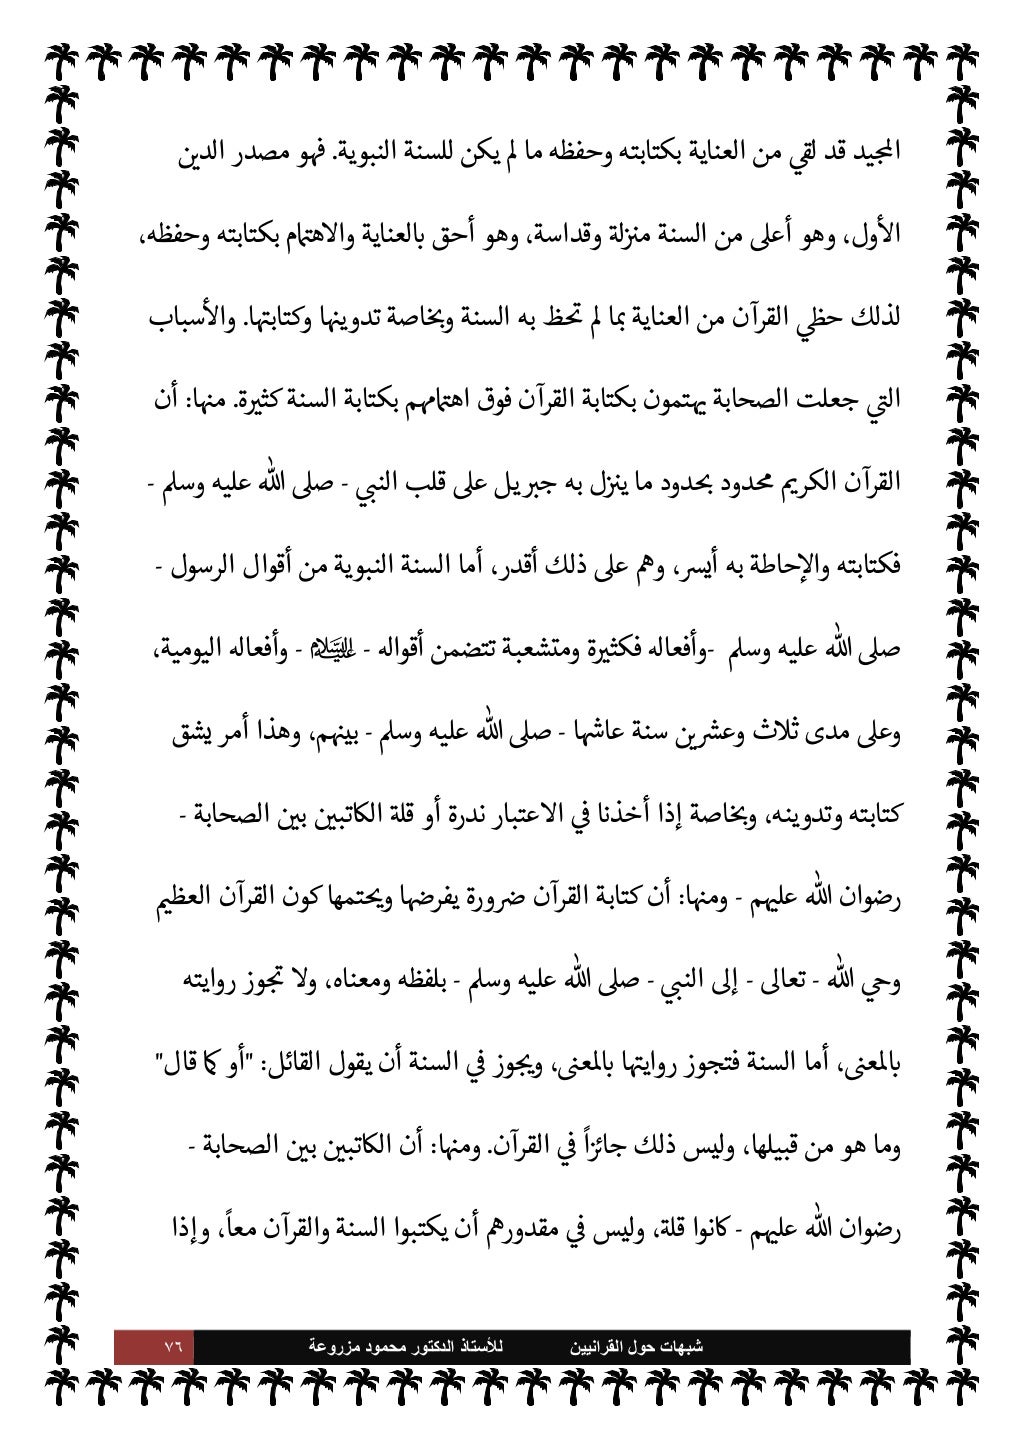 المجيد قد لقي من العناية بكتابته وحفظه ما لم يكن للسنة النبوية. فهو مصدر الدين
الأول، وهو أعلى من السنة منزلة وقداسة، وهو أحق بالعناية والاهتمام بكتابته وحفظه،
لذلك حظي القرآن من العناية بما لم تحظ به السنة وبخاصة تدوينها وكتابتها. والأسباب
التي جعلت الصحابة يهتمون بكتابة القرآن فوق اهتمامهم بكتابة السنة كثيرة. منها: أن
القرآن الكريم محدود بحدود ما ينزل به جبريل على قلب النبي - صلى الله عليه وسلم -
فكتابته والإحاطة به أيسر، وهم على ذلك أقدر، أما السنة النبوية من أقوال الرسول -
صلى الله عليه وسلم -وأفعاله فكثيرة ومتشعبة تتضمن أقواله - عليه السلام - وأفعاله اليومية،
وعلى مدى ثلاث وعشرين سنة عاشها - صلى الله عليه وسلم - بينهم، وهذا أمر يشق
كتابته وتدوينه، وبخاصة إذا أخذنا في الاعتبار ندرة أو قلة الكاتبين بين الصحابة -
رضوان الله عليهم - ومنها: أن كتابة القرآن ضرورة يفرضها ويحتمها كون القرآن العظيم
وحي الله - تعالى - إلى النبي - صلى الله عليه وسلم - بلفظه ومعناه، ولا تجوز روايته
بالمعنى، أما السنة فتجوز روايتها بالمعنى، ويجوز في السنة أن يقول القائل: "أو كما قال"
وما هو من قبيلها، وليس ذلك جائزاً في القرآن. ومنها: أن الكاتبين بين الصحابة -
رضوان الله عليهم - كانوا قلة، وليس في مقدورهم أن يكتبوا السنة والقرآن معاً، وإذا
شبهات حول القرانيين للأستاذ الدكتور محمود مزروعة ٧٦